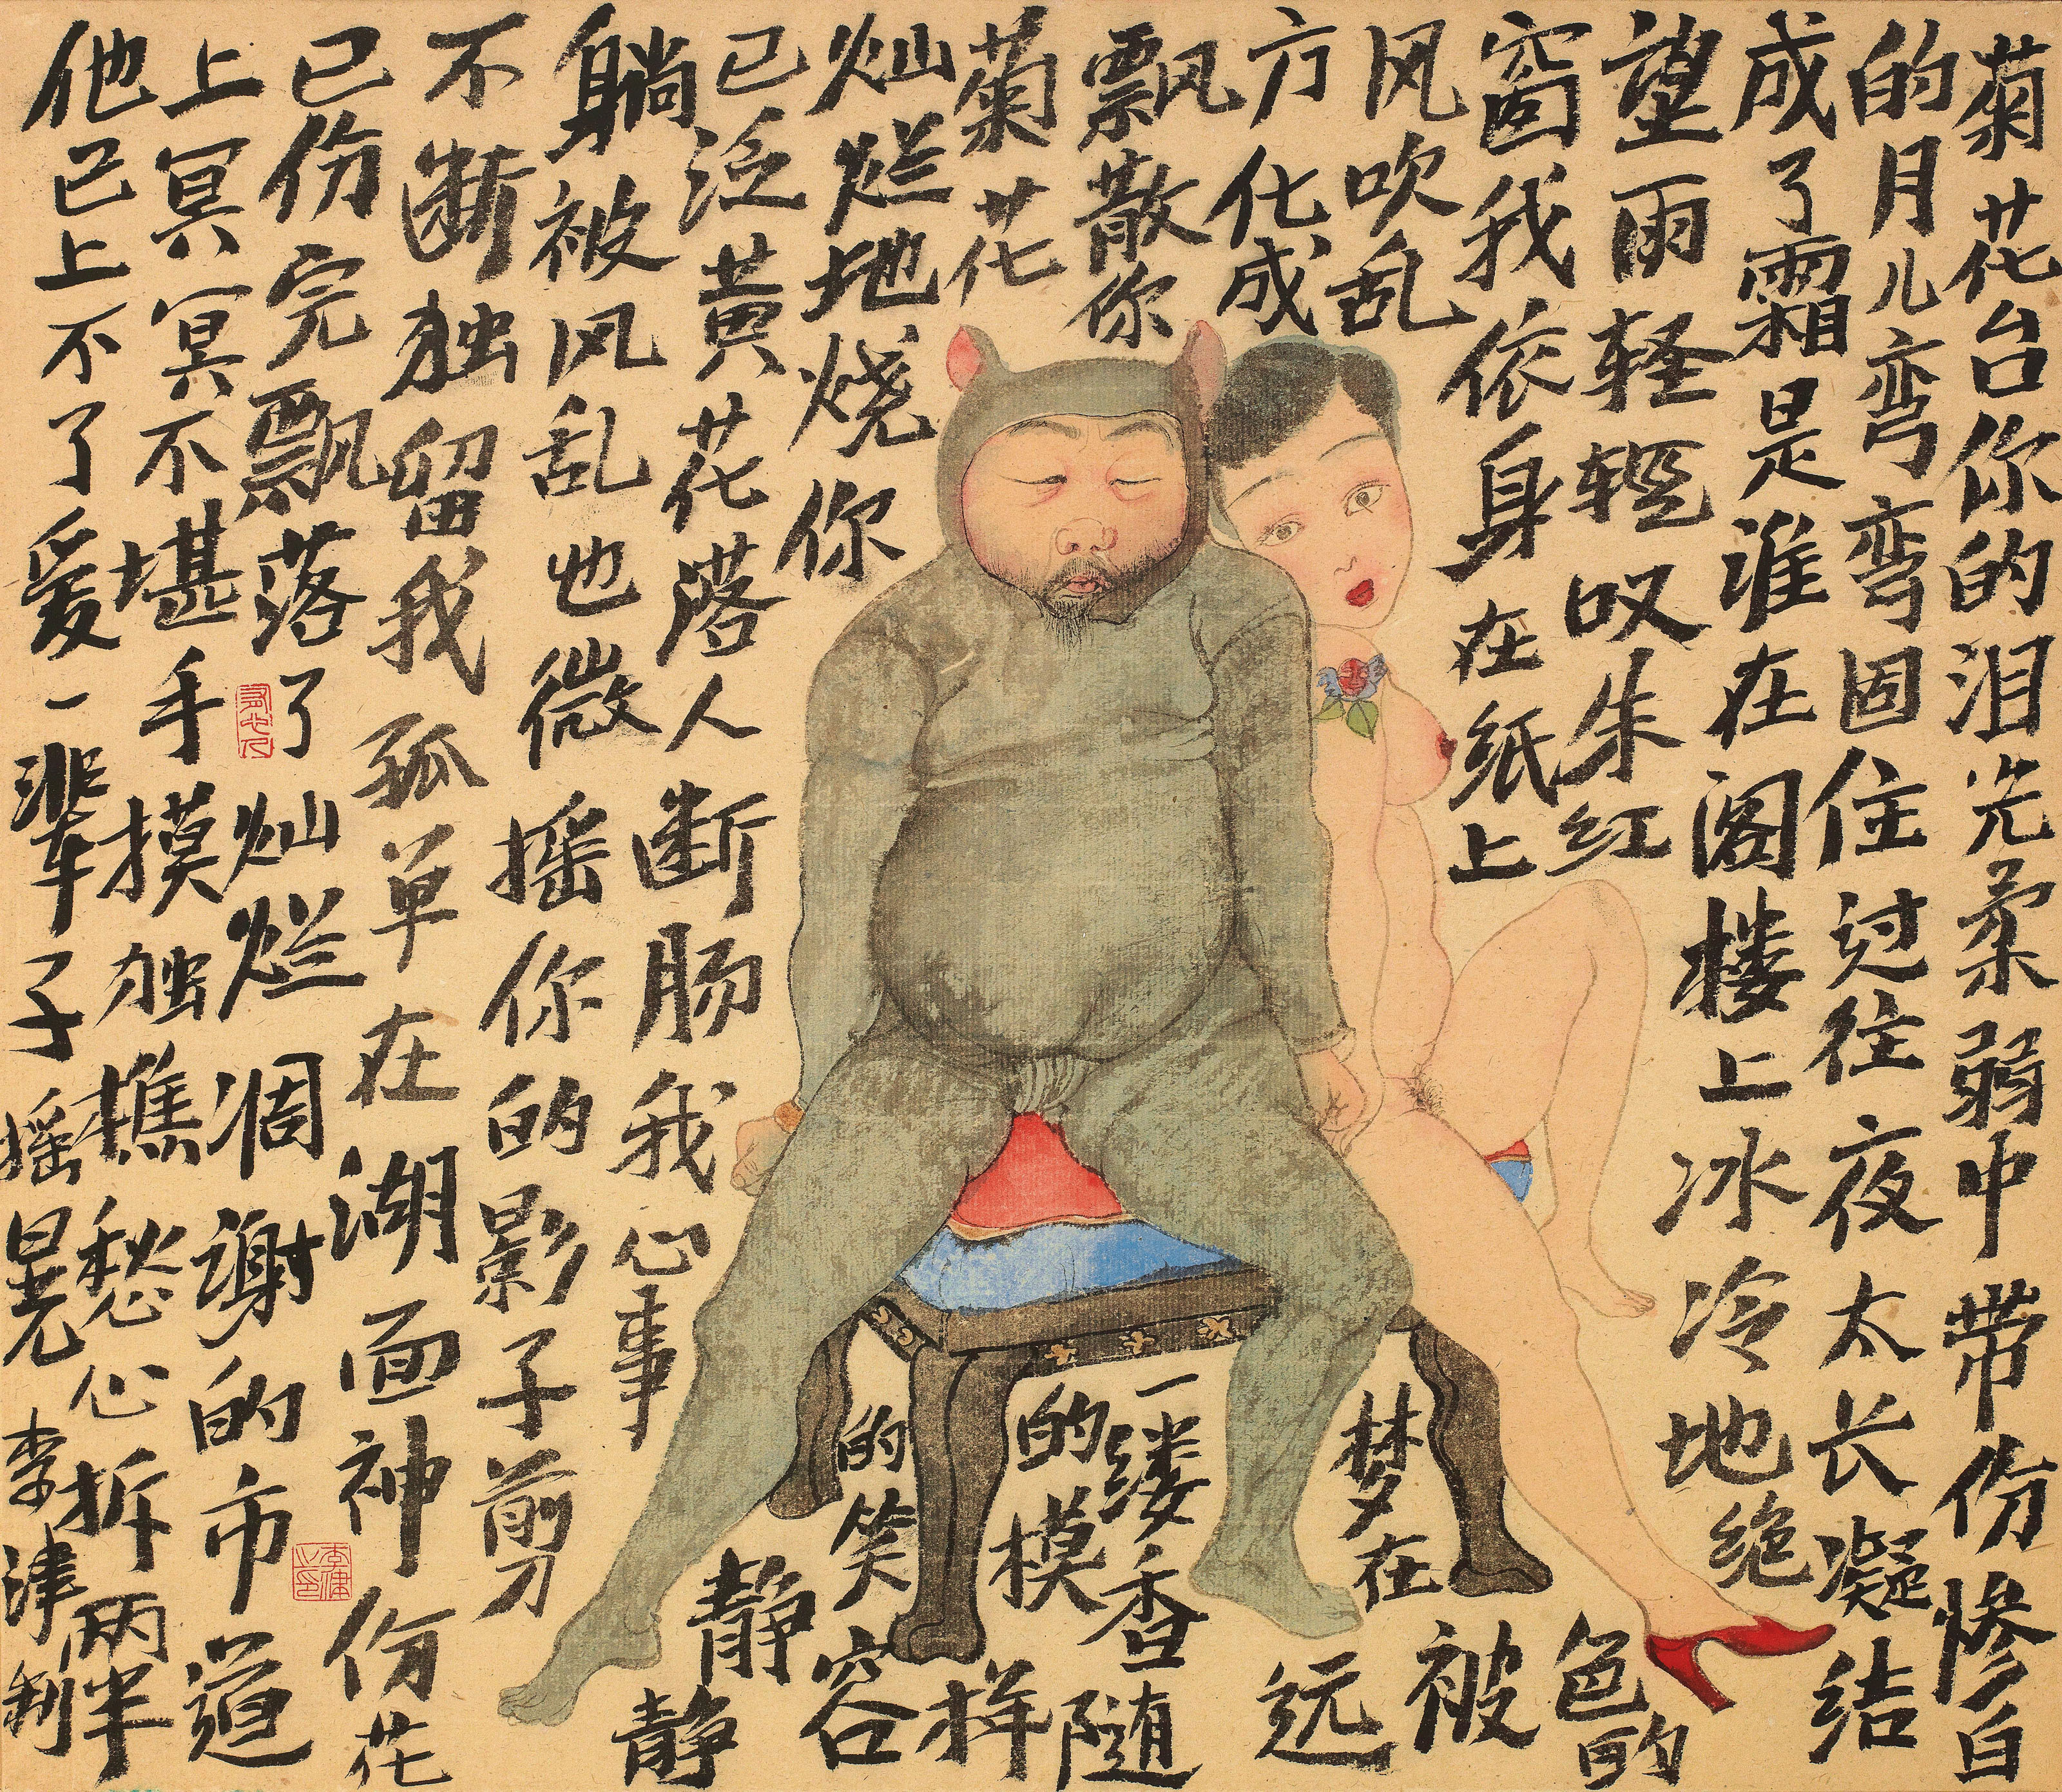 菊花台你的泪光柔弱中带份惨白
的月儿弯弯固住过往夜太长凝结
成了霜是谁在阁楼上冰冷地绝
望雨轻轻叹朱红色的
窗我依身在纸上被
风吹乱梦在远
方化成一缕香随
飘散你的模样
菊花
灿烂地烧你的笑容
已泛黄花落人断肠我心事静静
躺被风乱也微摇你的影子剪
不断独留我孤单在湖面神份花
已份完飘落了灿烂凋谢的市道
上冥冥不堪手摸独憔愁心拆两半
他已上不了爱一辈子摇晃李津制
李津之印